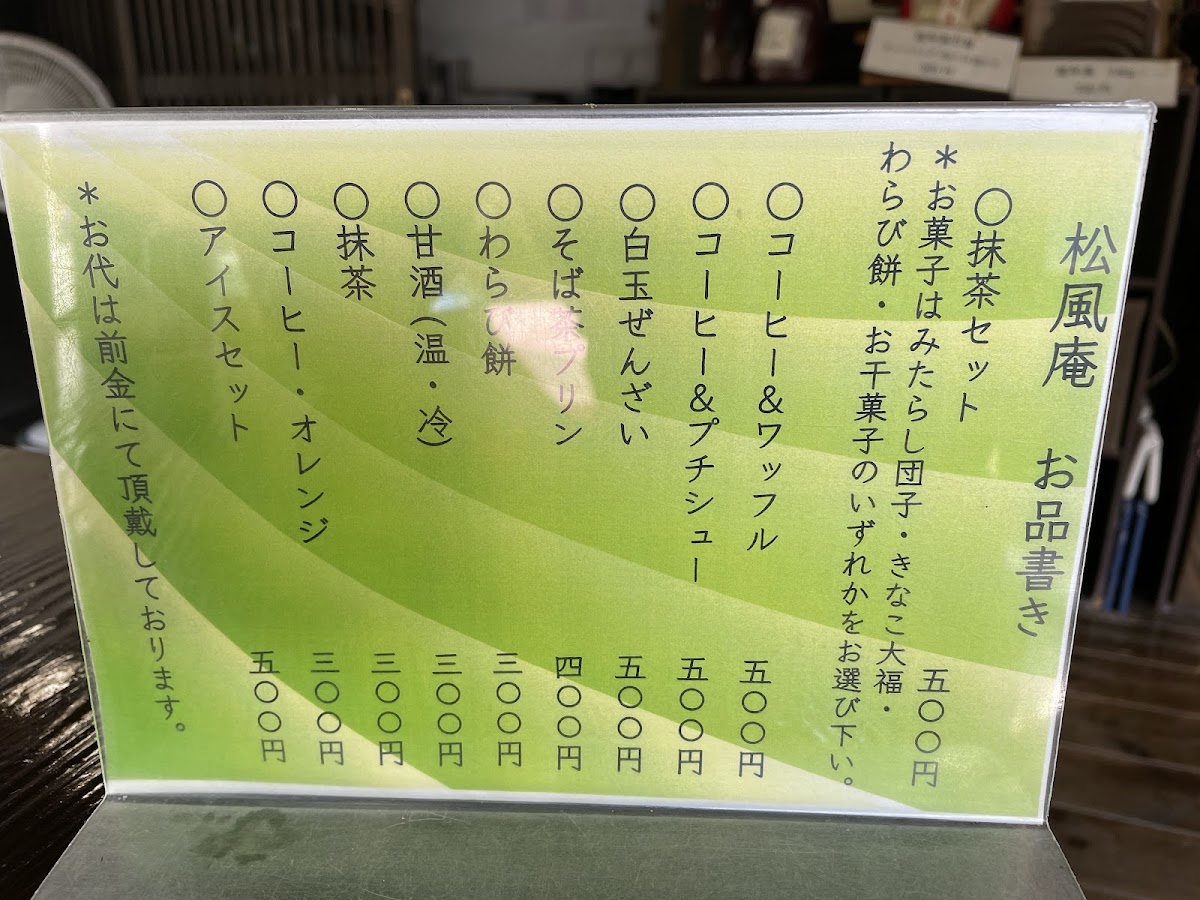 松風庵 お品書き
〇抹茶セット 五〇〇円
＊お菓子はみたらし団子・きなこ大福・
わらび餅・お干菓子のいずれかをお選び下い。
〇コーヒー&ワッフル 五〇〇円
〇コーヒー&プチシュー 五〇〇円
〇白玉ぜんざい 五〇〇円
〇そば茶プリン 四〇〇円
〇わらび餅 三〇〇円
〇甘酒(温・冷) 三〇〇円
〇抹茶 三〇〇円
〇コーヒー・オレンジ 三〇〇円
〇アイスセット 五〇〇円
＊お代は前金にて頂戴しております。